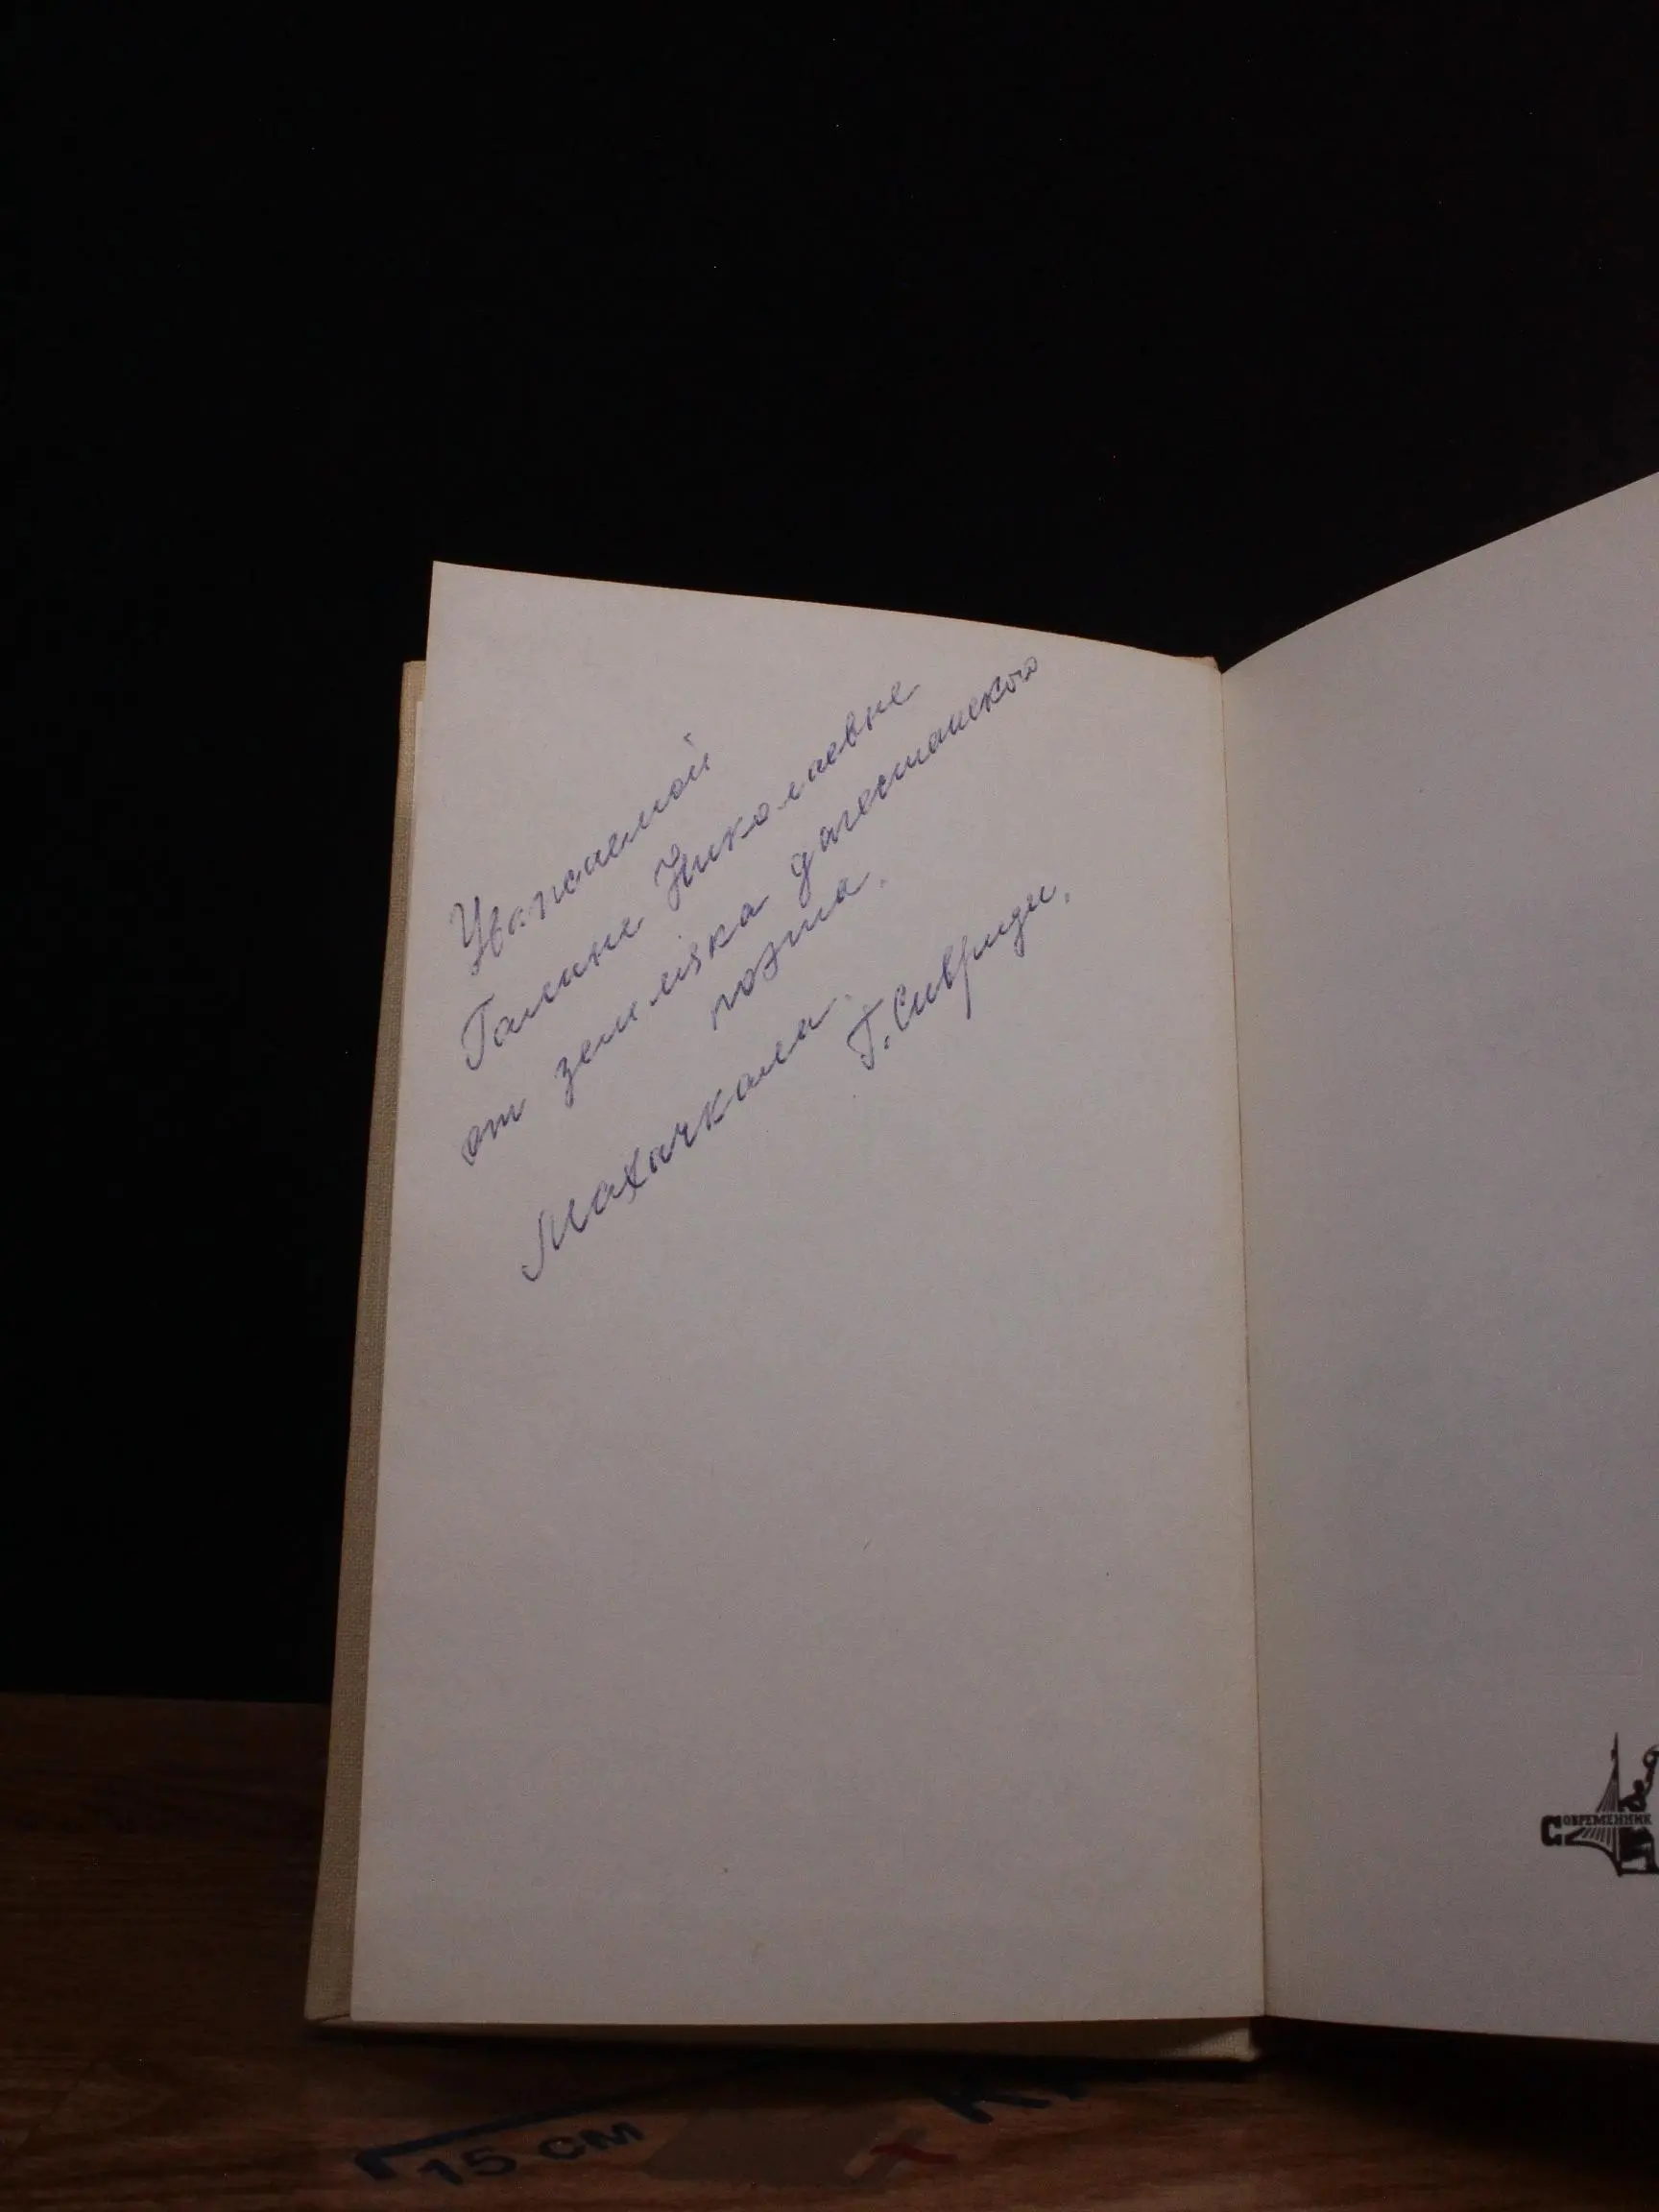 Уважаемой
Галине Николаевне
от земляка дагестанского
поэта.
Махачкала.
Г. Сивриди.
СОВРЕМЕННИК
15 СМ